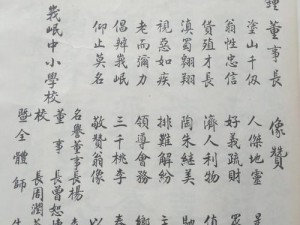 理董事長 像贊
塗山千仞 人傑地靈
翁性忠信 好義疏財
貨殖才長 濟人利物
滇蜀翔翔 陶朱繼美
視惡如疾 排難解紛
老而彌力 領導會務 
倡辦峩岷 三千桃李 春
仰止莫名 敬贊翁像 以
峩岷中小學校
名譽董事長楊
董事長曾恕
校長周潤
暨全體師生